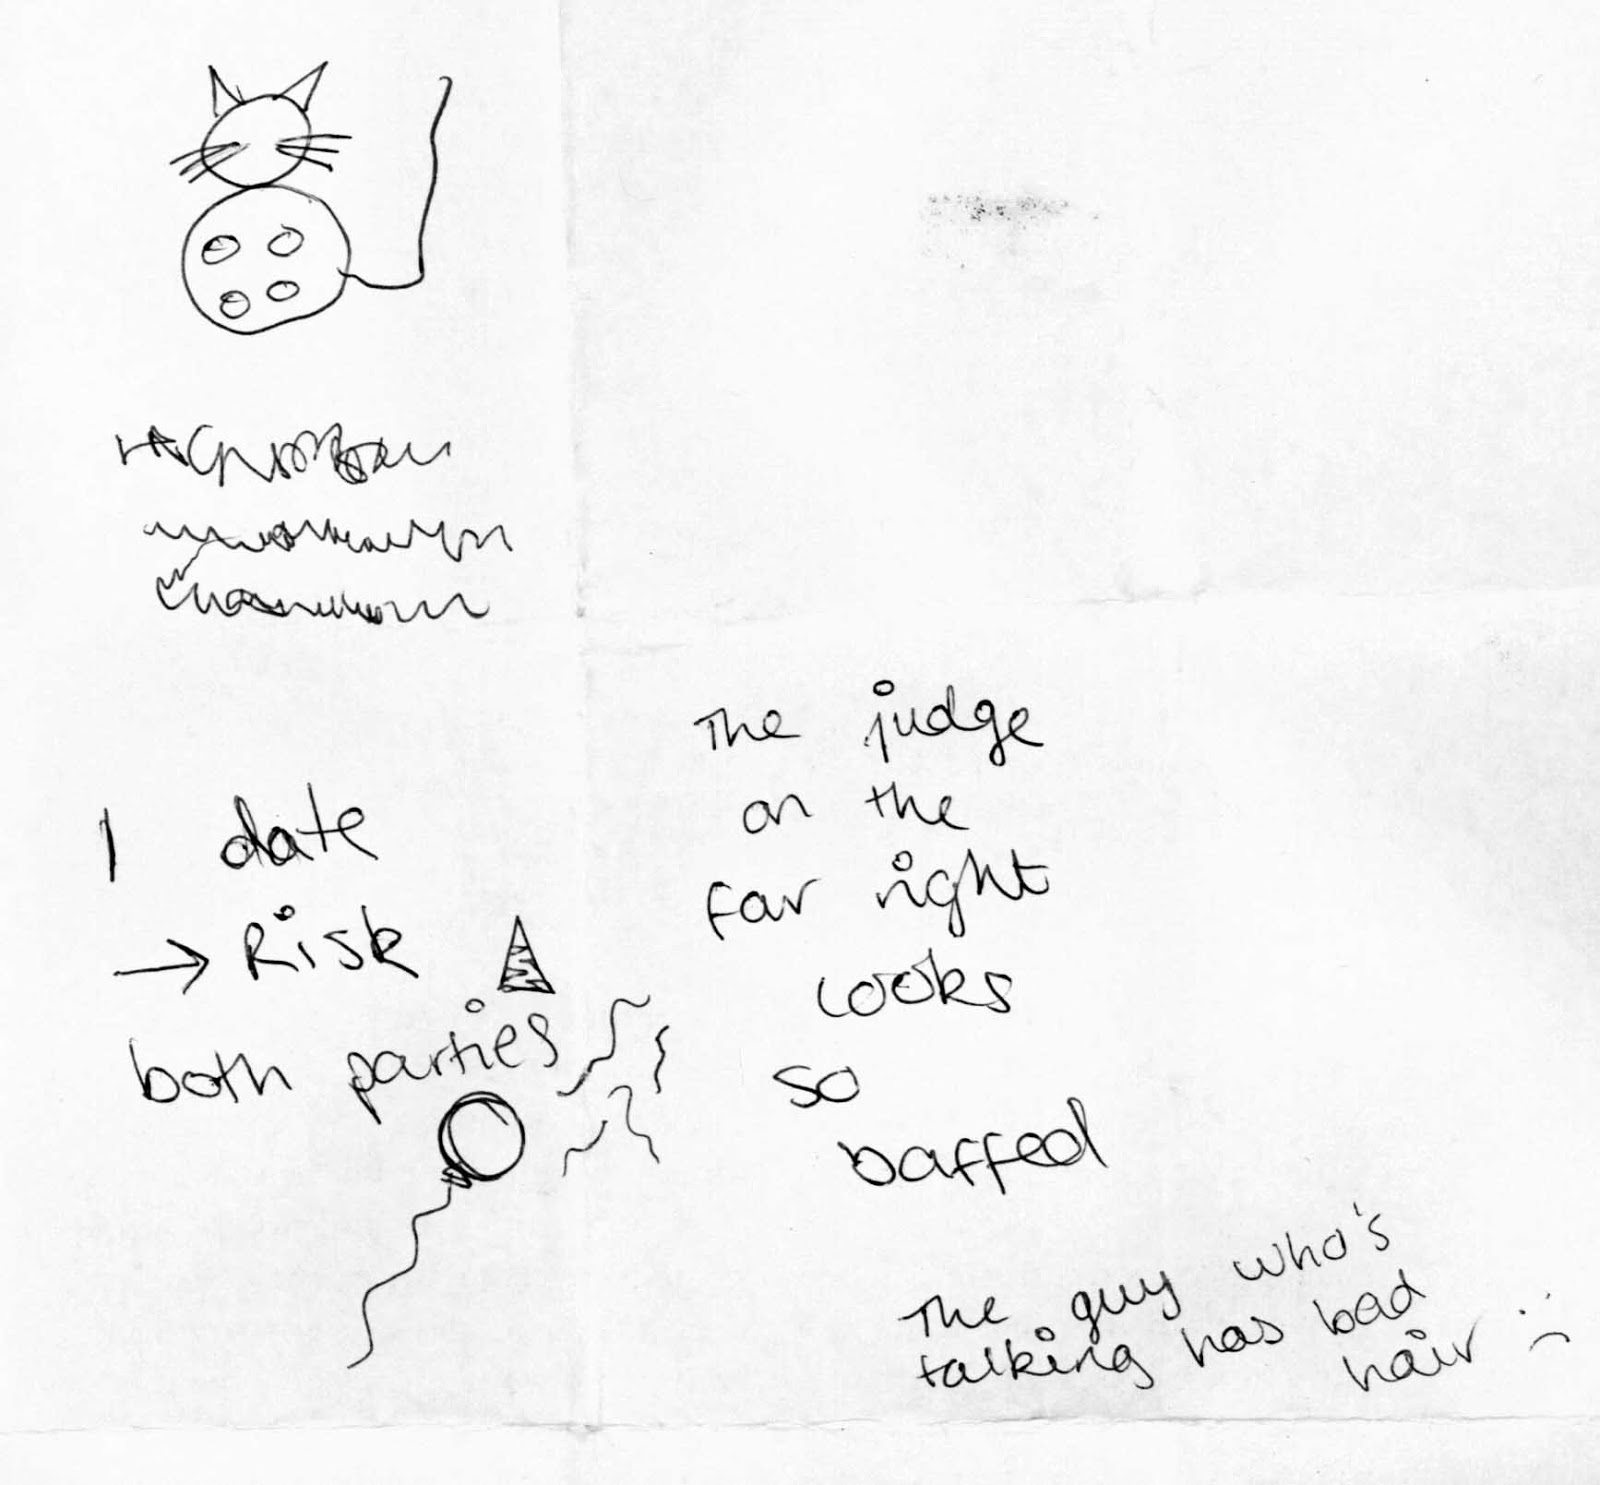 1 date
→ Risk
both parties
The judge
on the
far right
looks
so
baffed
The guy who's
talking has bad
hair :(